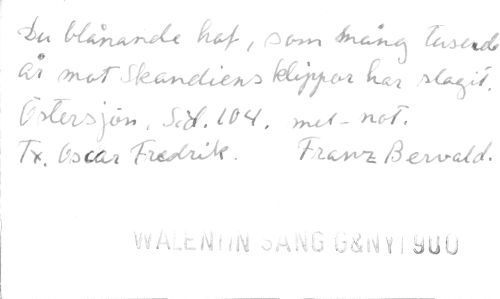 Du blånande haf, som mång tusende
år mot Skandiens klippor har slagit.
Östersjön. Sid. 104. mel-not.
Tx. Oscar Fredrik. Franz Bervald.
WALENTIN SÅNG G&NYT 900